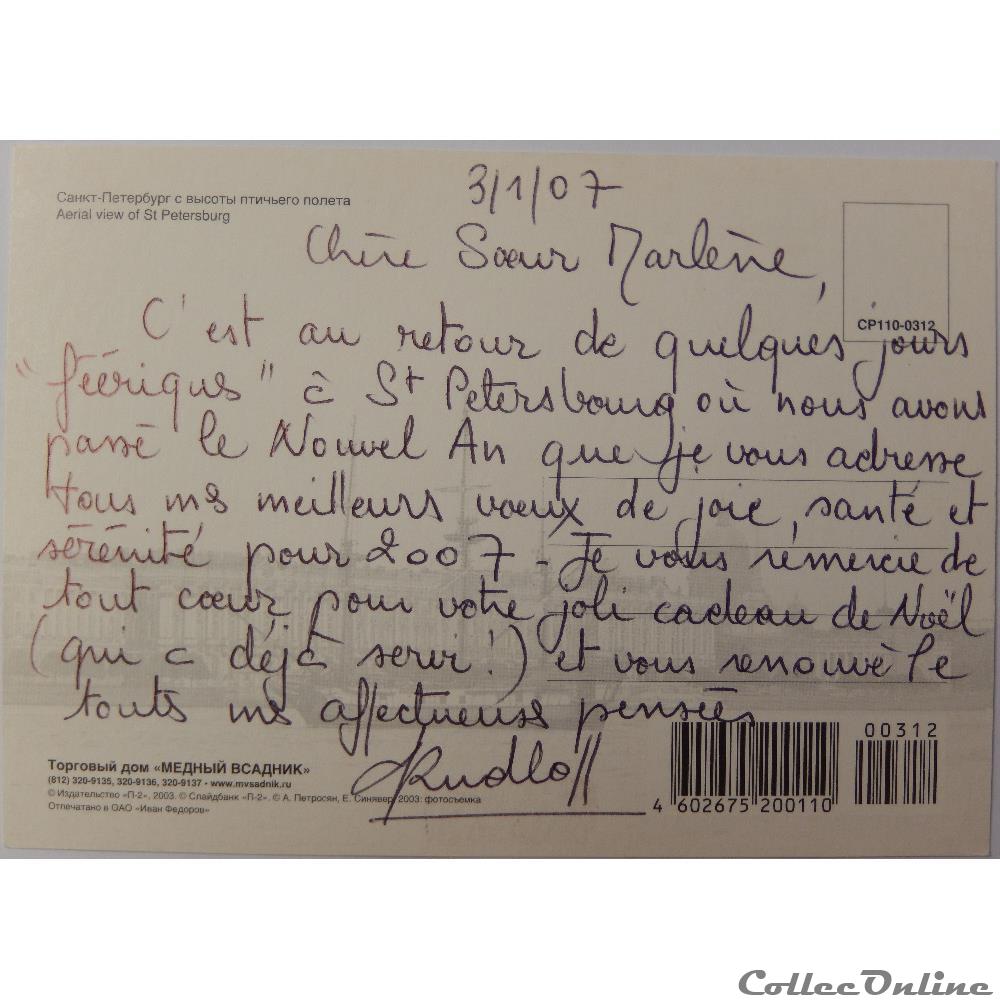 3/1/07
Санкт-Петербург с высоты птичьего полета
Aerial view of St Petersburg
Chère Sœur Marlène,
CP110-0312
C'est au retour de quelques jours
"féériques" à St Petersbourg où nous avons
passé le Nouvel An que je vous adresse
tous mes meilleurs vœux de joie, santé et
sérénité pour 2007 - Je vous remercie de
tout cœur pour votre joli cadeau de Noël
(qui a déjà servi !) et vous renouvèle
toutes mes affectueuses pensées
Rudloff
00312
Торговый дом «МЕДНЫЙ ВСАДНИК»
(812) 320-9135, 320-9136, 320-9137 • www.mvsadnik.ru
© Издательство «П-2», 2003. © Слайдбанк «П-2». © А. Петросян, Е. Синявер, 2003: фотосъемка
Отпечатано в ОАО «Иван Федоров»
4 602675 200110
CollecOnline